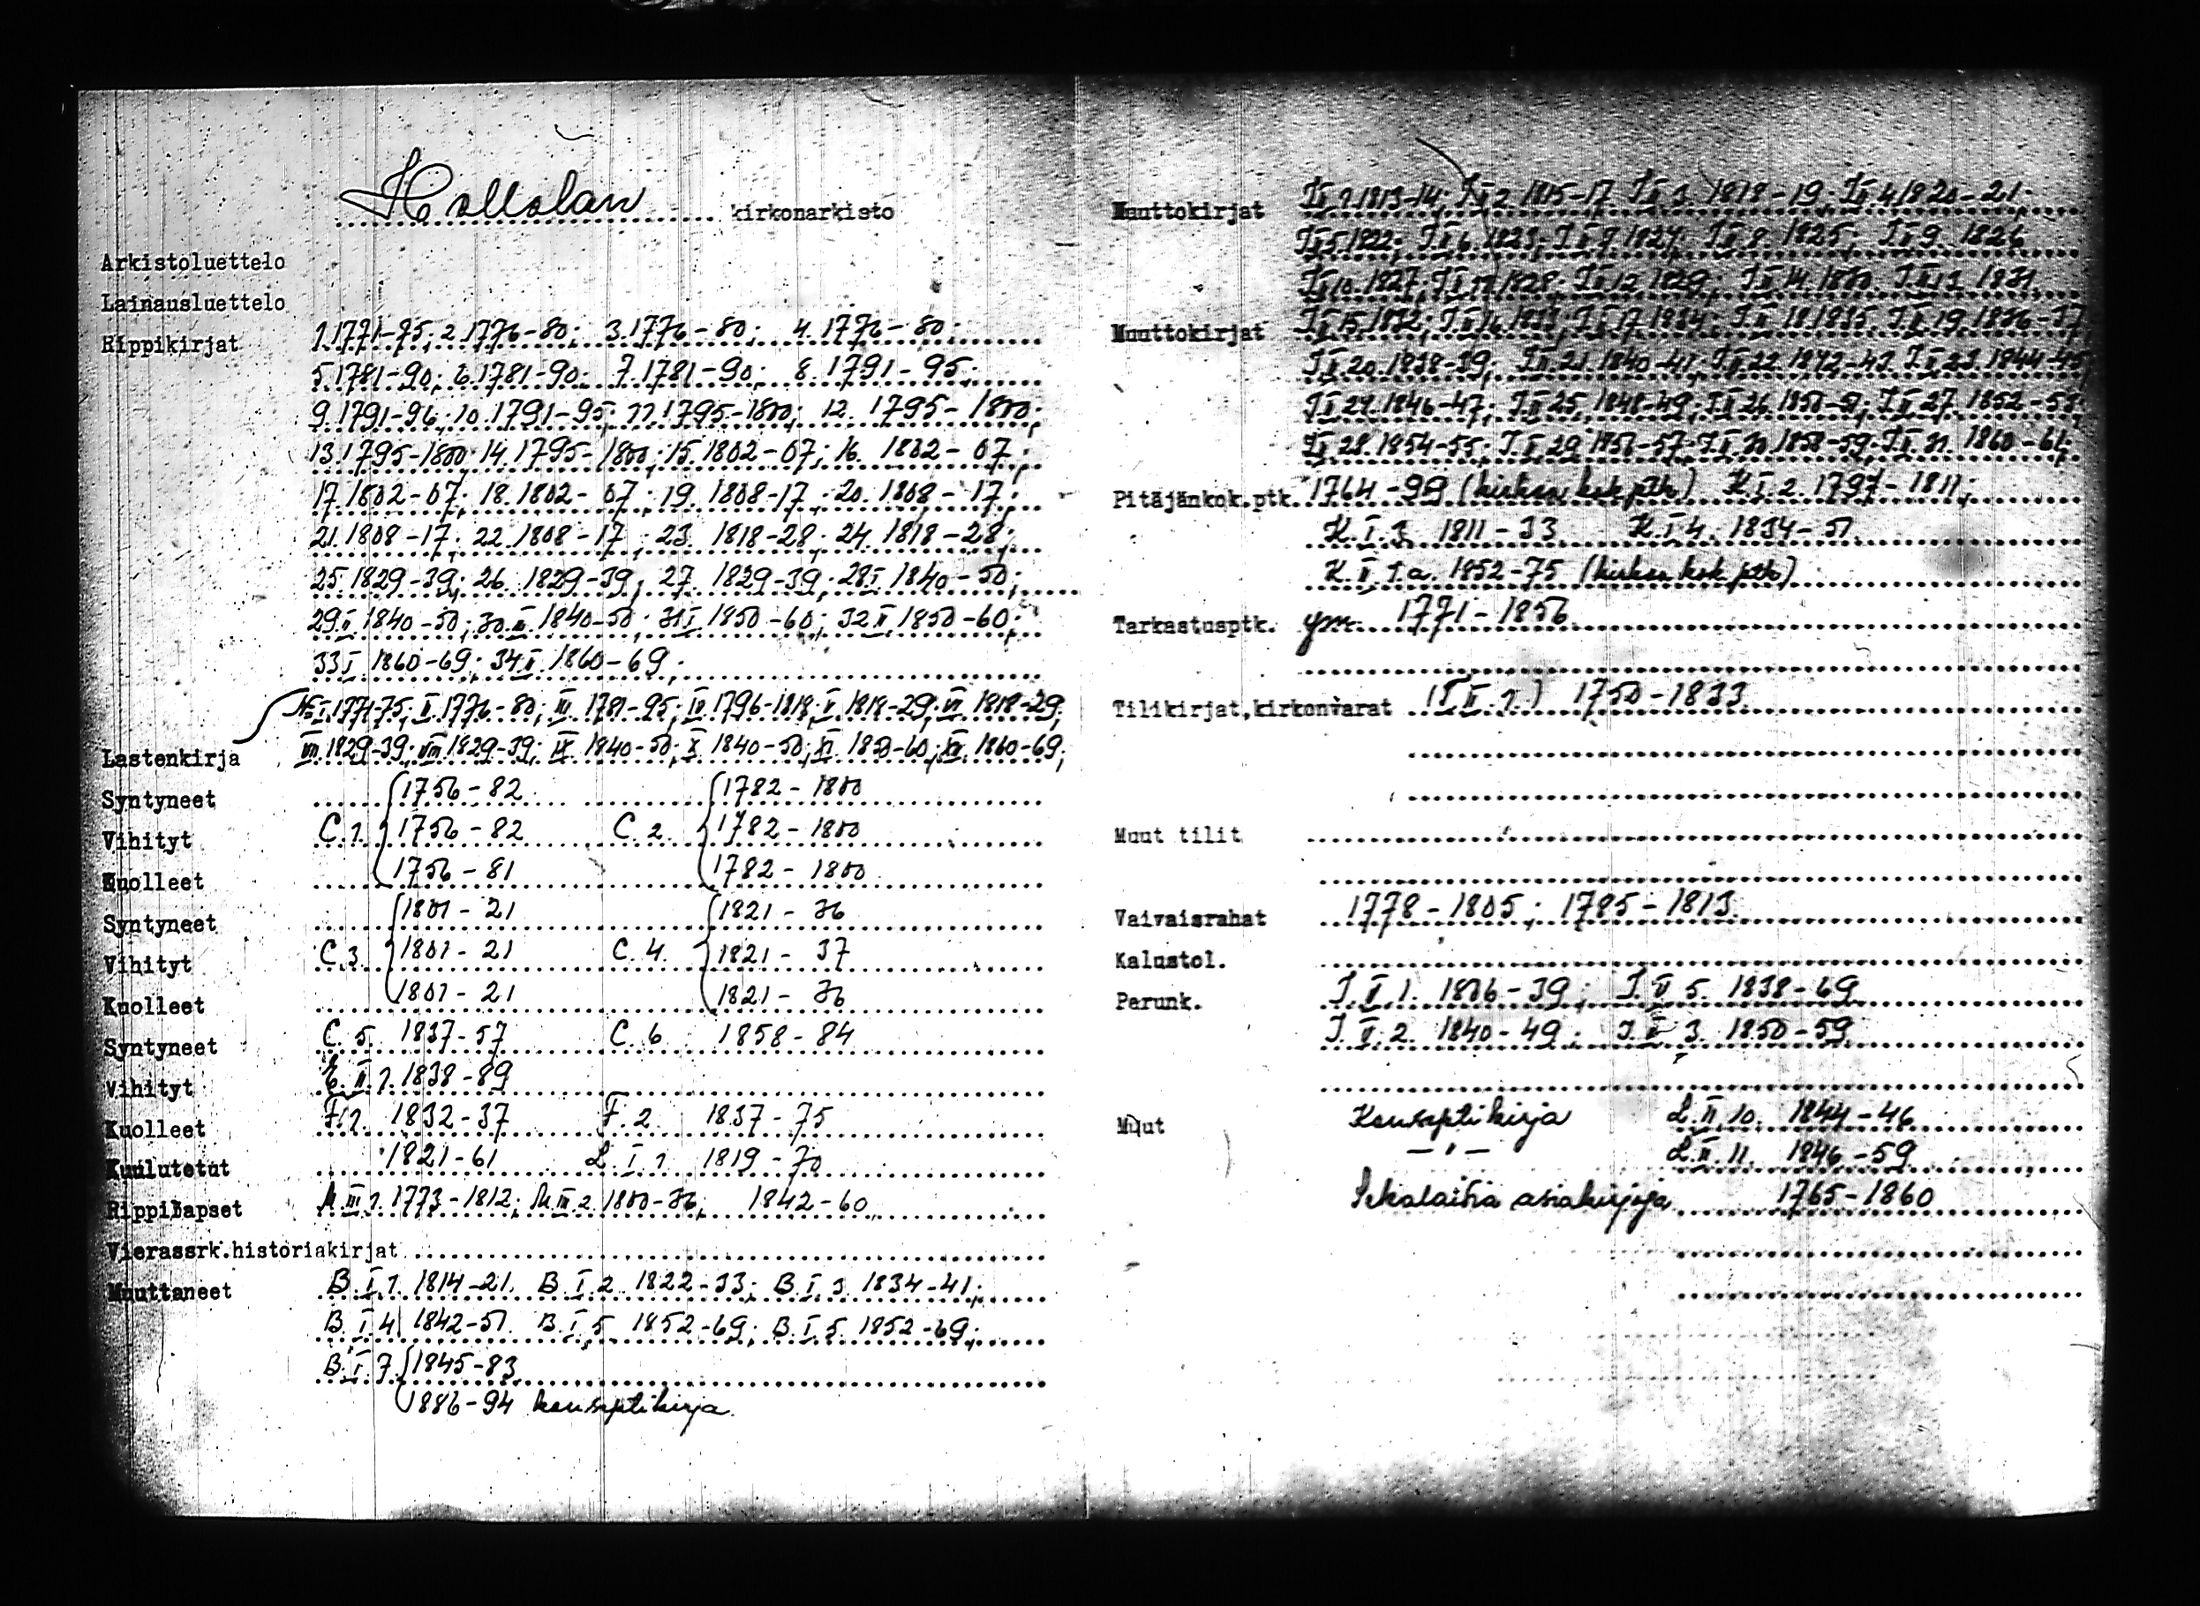 Hollolan kirkonarkisto
Arkistoluettelo
Lainausluettelo
Rippikirjat 1.1771-75; 2.1776-80; 3.1776-80; 4.1776-80;
5.1781-90; 6.1781-90; 7.1781-90; 8.1791-95;
9.1791-96; 10.1791-95; 11.1795-1800; 12.1795-1800;
13.1795-1800; 14.1795-1800; 15.1802-07; 16.1802-07;
17.1802-07; 18.1802-07; 19.1808-17; 20.1808-17;
21.1808-17; 22.1808-17; 23.1818-28; 24.1818-28;
25.1829-39; 26.1829-39; 27.1829-39; 28 I 1840-50;
29 II 1840-50; 30 III 1840-50; 31 I 1850-60; 32 II 1850-60;
33 I 1860-69; 34 II 1860-69;
No I 1771-75; II 1776-80; III 1781-95; IV 1796-1818; V 1818-29; VI 1818-29;
Lastenkirja VII 1829-39; VIII 1829-39; IX 1840-50; X 1840-50; XI 1850-60; XII 1860-69;
Syntyneet 1756-82 1782-1800
Vihityt C.1. 1756-82 C.2. 1782-1800
Kuolleet 1756-81 1782-1800
Syntyneet 1801-21 1821-36
Vihityt C.3. 1801-21 C.4. 1821-37
Kuolleet 1801-21 1821-36
Syntyneet C.5. 1837-57 C.6 1858-84
Vihityt E.II.1. 1838-89
Kuolleet F.1. 1832-37 F.2. 1837-75
Kuulutetut 1821-61 L.I.1 1819-70
Rippilapset M.III.1. 1773-1812; M.III.2. 1800-36; 1842-60
Vierassrk.historiakirjat
Muuttaneet B.I.1 1814-21. B.I.2. 1822-33; B.I.3 1834-41;
B.I.4 1842-51. B.I.5 1852-69; B.I.5. 1852-69;
B.I.7 1845-83
1886-94 konseptikirja
Muuttokirjat I II 1 1813-14; I II 2 1815-17. I II 3. 1818-19; I II 4 1820-21;
I II 5 1822; I II 6. 1823; I II 7. 1824; I II 8. 1825; I II 9. 1826
I II 10. 1827; I II 11 1828; I II 12 1829; I II 14. 1830. I II 13 1831.
Muuttokirjat I II 15 1832; I II 16 1833; I II 17 1834; I II 18 1835 I II 19. 1836-37
I II 20. 1838-39; I II 21. 1840-41; I II 22. 1842-43. I II 23. 1844-45;
I II 24. 1846-47; I II 25. 1848-49; I II 26 1850-51; I II 27. 1852-53;
I II 28. 1854-55; I II 29 1856-57; I II 30 1858-59; I II 31. 1860-61;
Pitäjänkok.ptk. 1764-99 (kirkon kok.ptk) K.I.2. 1797-1811;
K.I.3. 1811-33 K.I.4. 1834-51
K.II.1.a. 1852-75 (kirkon kok.ptk)
Tarkastusptk. ym. 1771-1856
Tilikirjat,kirkonvarat 1750-1833
Muut tilit
Vaivaisrahat 1778-1805; 1785-1813
Kalustol.
Perunk. I.II.1. 1806-39; I.II.5. 1838-69
I.II.2. 1840-49; I.II.3. 1850-59
Muut Konseptikirja L.II.10. 1844-46
-"- L.II.11. 1846-59
Sekalaisia asiakirjoja 1765-1860